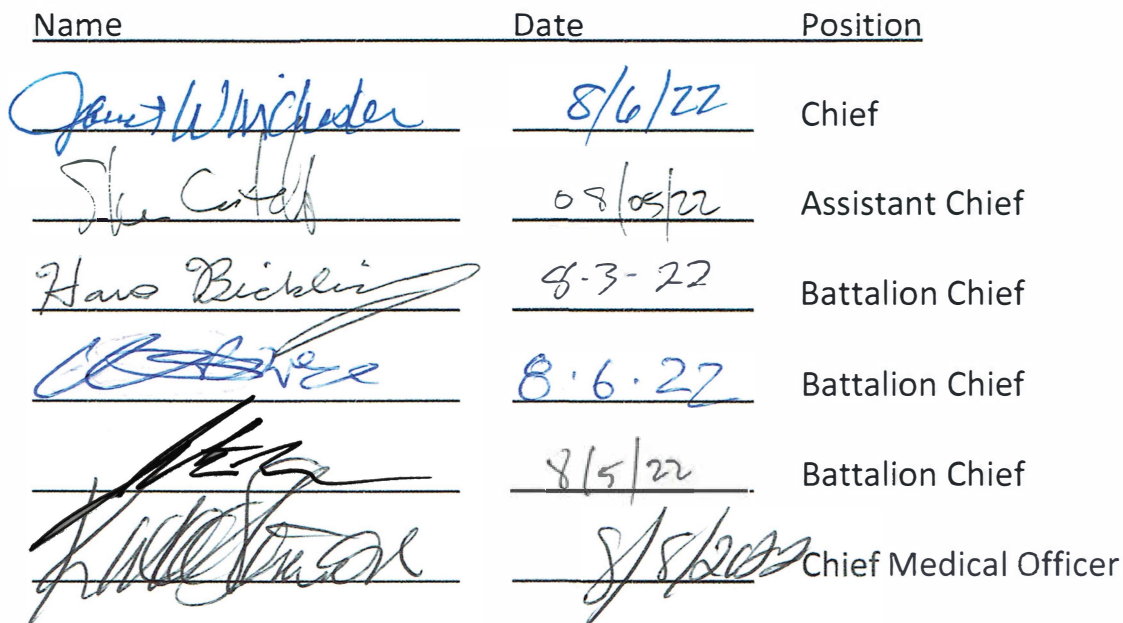 Name Date Position
Janet Winchester 8/6/22 Chief
08/05/22 Assistant Chief
Hans Bicklin 8-3-22 Battalion Chief
8.6.22 Battalion Chief
8/5/22 Battalion Chief
8/8/2022 Chief Medical Officer